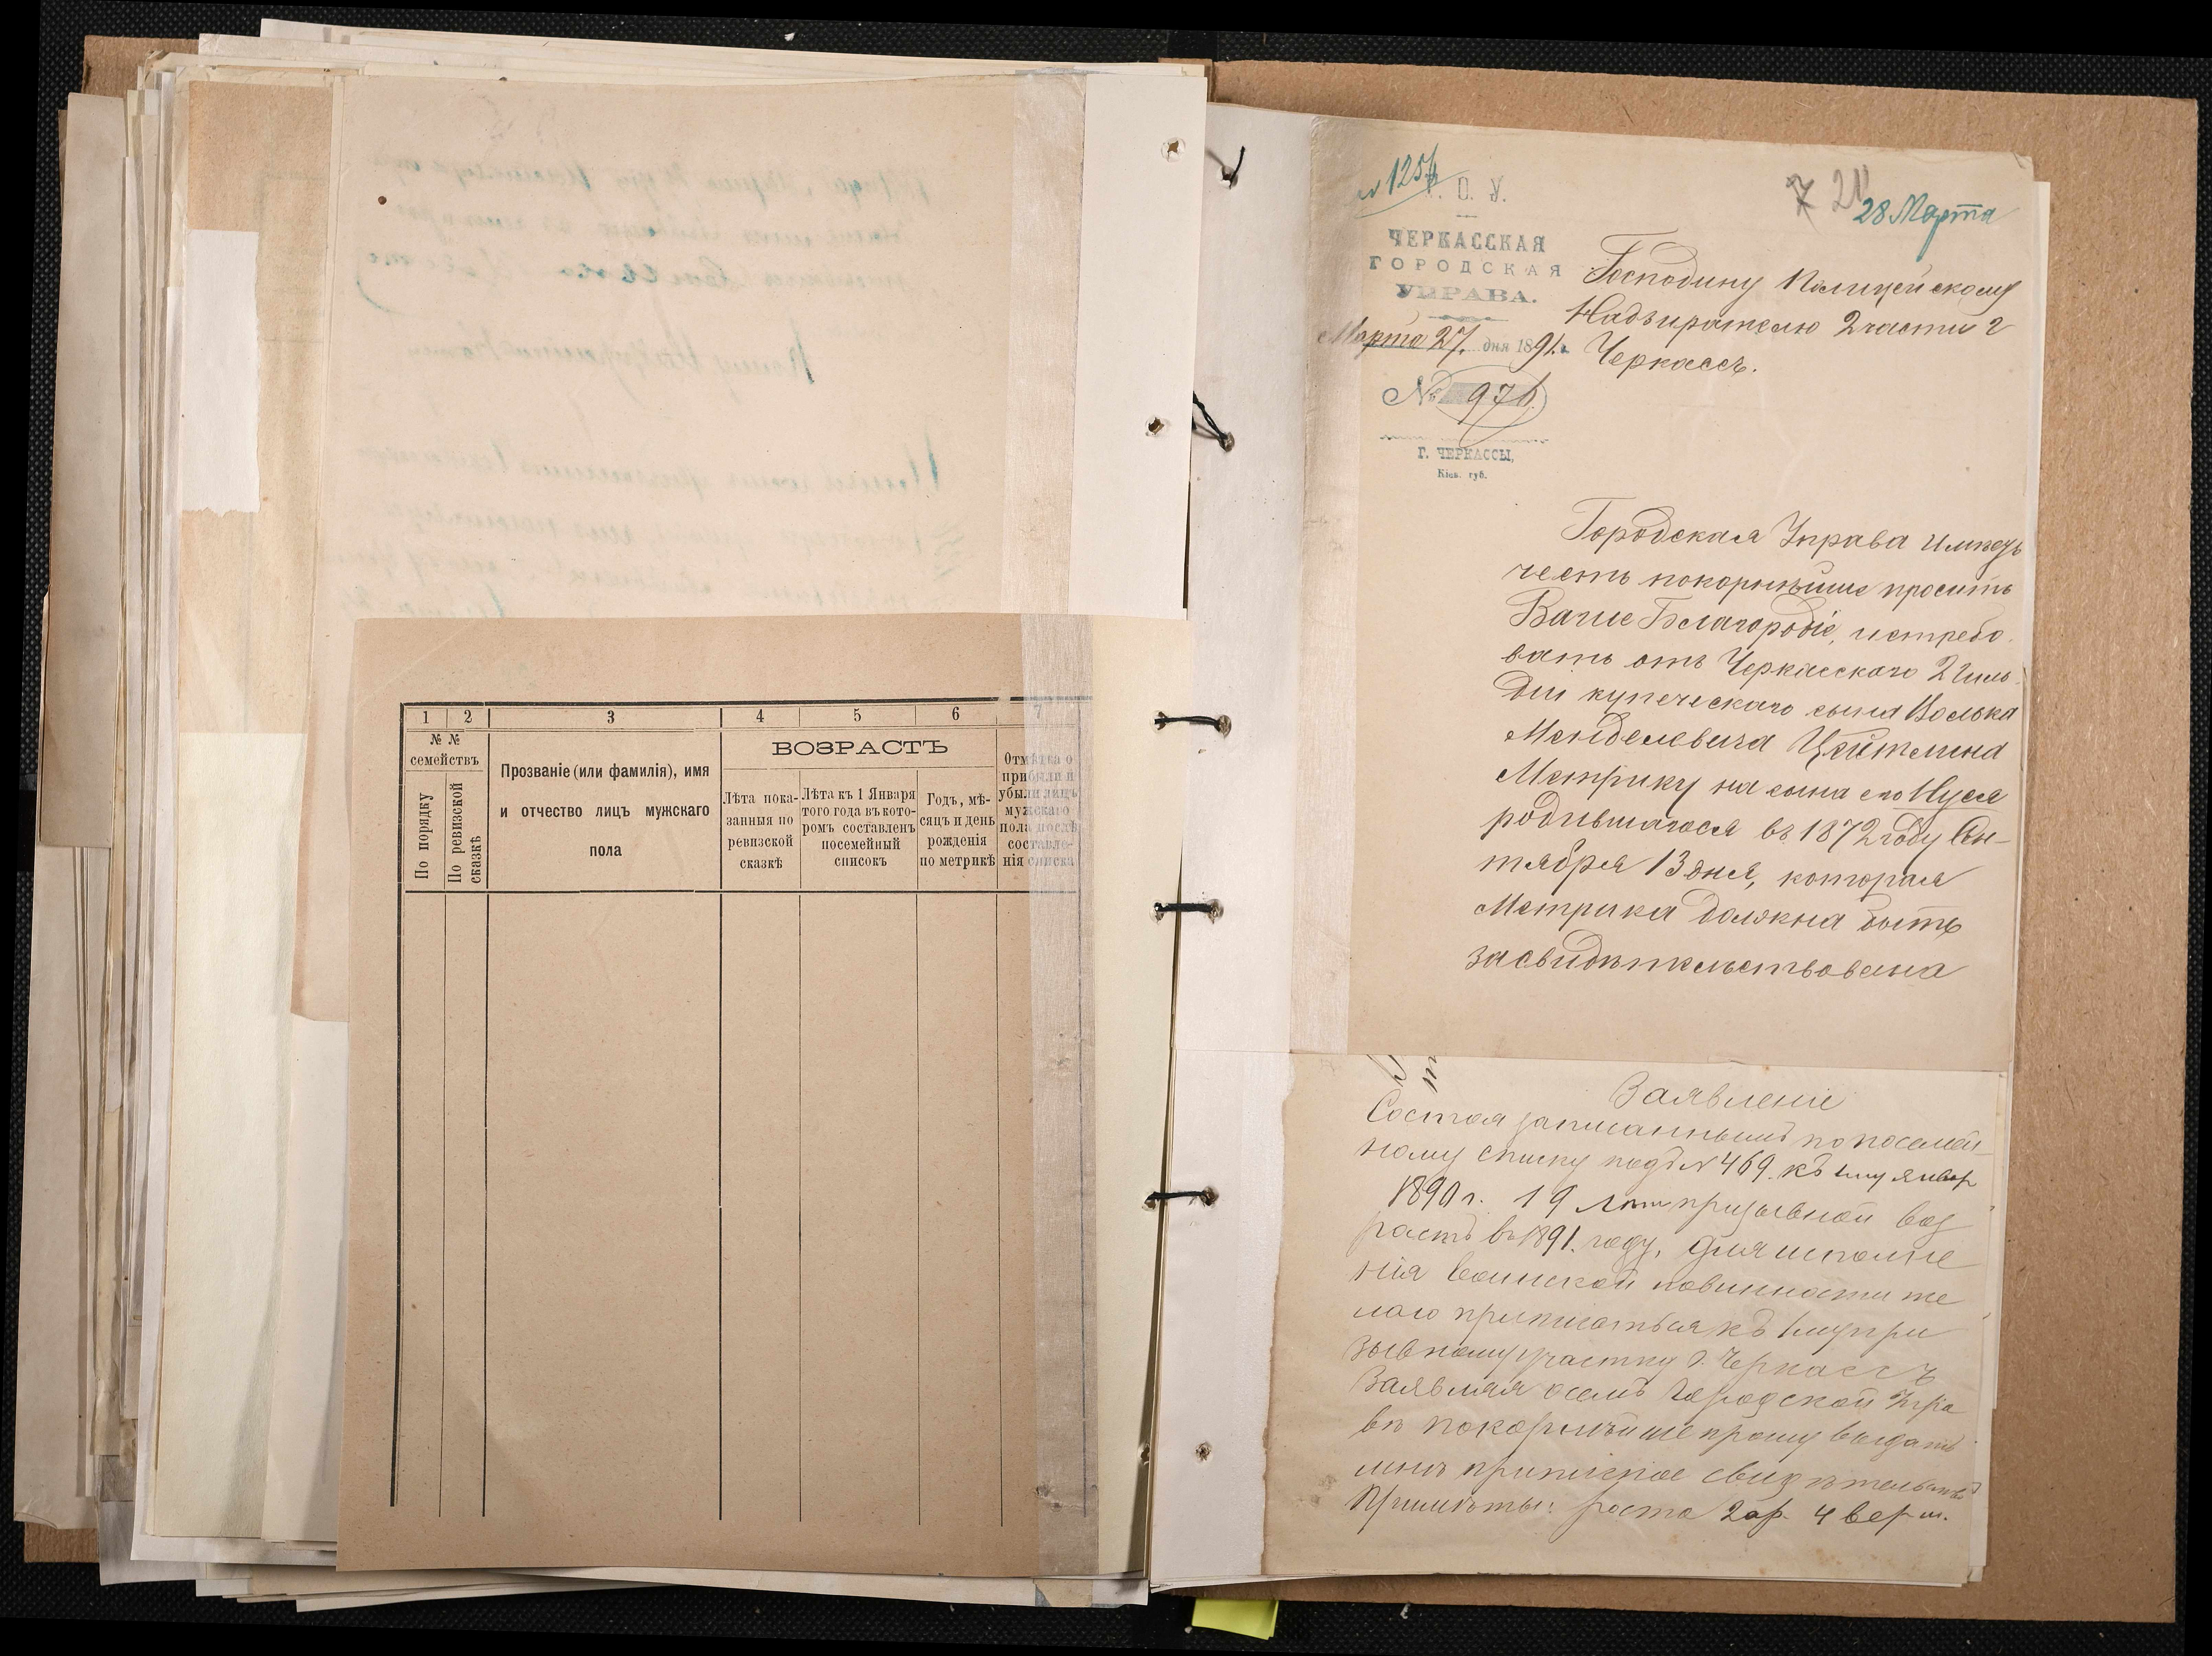 1 2 3 4 5 6 7
№ №
семействъ
По порядку
По ревизской
сказкѣ
Прозваніе (или фамилія), имя
и отчество лицъ мужскаго
пола
ВОЗРАСТЪ
Лѣта пока-
занныя по
ревизской
сказкѣ
Лѣта къ 1 Января
того года въ кото-
ромъ составленъ
посемейный
списокъ
Годъ, мѣ-
сяцъ и день
рожденія
по метрикѣ
Отмѣтка о
прибыли и
убыли лицъ
мужскаго
пола послѣ
составле-
нія списка
28 Марта
О. У.
ЧЕРКАССКАЯ
ГОРОДСКАЯ
УПРАВА.
Марта 27. дня 1891 г.
№ 976
Г. ЧЕРКАССЫ,
Кіев. губ.
Господину Полицейскому
Надзирателю 2 части г
Черкассъ.
Городская Управа имѣетъ
честь покорнѣйше просить
Ваше Благородіе, истребо
вать отъ Черкасскаго 2 гиль
діи купеческаго сына Волька
Менделевича Цейтлина
Метрику на сына его Нуся
родившагося въ 1872 году Сен-
тября 13 дня, которая
Метрика должна быть
засвидѣтельствована
Заявленіе
Состоя записаннымъ по посемей-
ному списку подъ № 469. къ 1му январ
1890 г. 19 лѣтъ призывной воз
растъ въ 1891. году, для исполне
нія воинской повинности же
лаю приписаться къ 1му при
зывному участку г. Черкассъ
Заявляя о семъ Городской Упра
вѣ покорнѣйше прошу выдать
мнѣ приписное свидѣтельство
Примѣты: роста 2 ар. 4 верш.